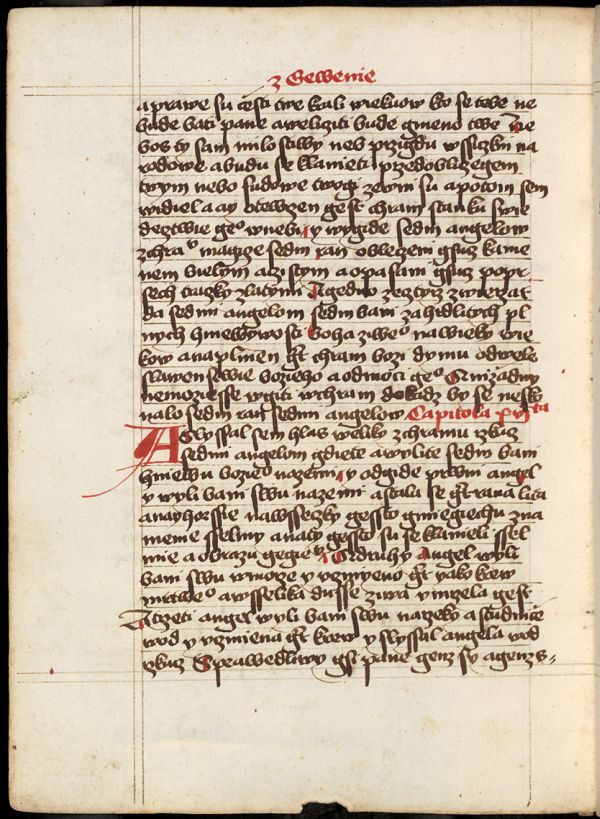 z Gewenie
a prawe su cesti twe krali wiekuow kto se tebe ne
bude bati pane a welicziti bude gmeno twe Nebo
ty sam milostiwy neb przigdu wssiczkni na
rodowe a budu se klanieti przed obliczegem
twym nebo sudowe twogi zewni su a potom sem
widiel a ay otewrzen gest chram stanku swie
decztwie geᵒ w nebi y wygide sedm angelow
z chraᵒ magicze sedm ran obleczeni gsuc kame
nem bielym a czistym a opasani gsuc po pr
sech traczky zlatymi A gedno ze cztyrz zwierzat
da sedmi angelom sedm bani zahrdlitych pl
nych hniewywosti boha ziweᵒ na wieky wie
kow a naplnien gest chram bozi dymu od wele
slawenstwie bozieho a od moci geᵒ A nizadny
nemoziesse wgiti w chram dokudz by se nesko
nalo sedm ran sedmi angelow Capitola xvita
A slyssal sem hlas weliky z chramu rzkuc
sedmi angelom gdiete a wylite sedm bani
hniewu bozieᵒ na zemi y odgide prwni angel
y wyli bani swu na zemi a stala se gest rana lita
a nayhorssie na wssezky gessto gmiegiechu zna
menie sselmy a na ty gessto su se klanieli ssel
mie a obrazu gegieᵒ A druhy Angel wyli
bani swu w morze y vczinieno gest yako krew
mrtweᵒ a wsselika dusse ziwa vmrzela gest
A trzeti angel wyli bani swu na rzeky a studnice
wod y vczniena gest krew y slyssal angela wod
rzkuc Sprawedliwy gsi pane genz sy a genz s